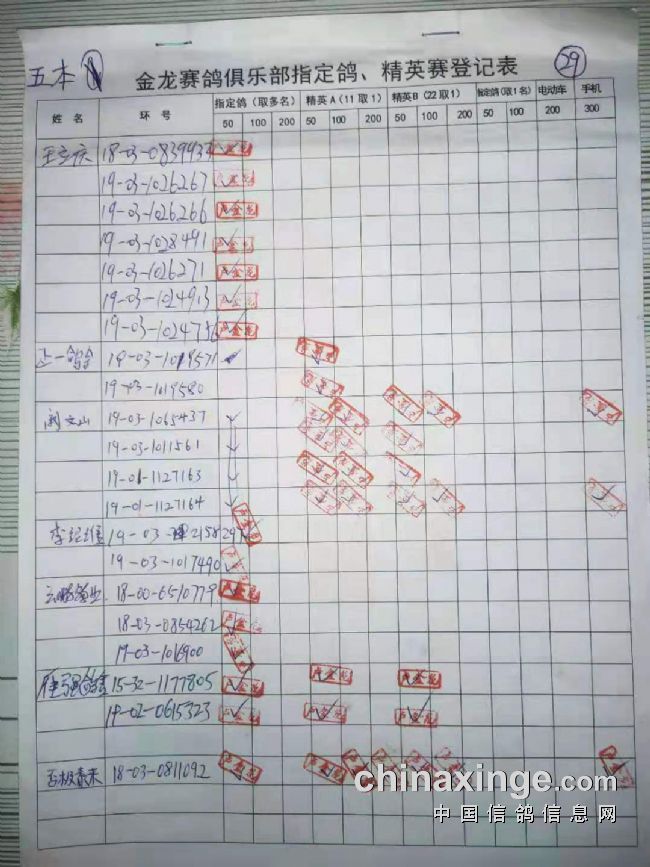 五本
金龙赛鸽俱乐部指定鸽、精英赛登记表
29
姓名 环号 指定鸽（取多名） 精英A（11取1） 精英B（22取1） 指定鸽（取1名） 电动车 手机
50 100 200 50 100 200 50 100 200 50 100 200 300
18-03-0839437
19-03-1026267
19-03-1026266
19-03-1028491
19-03-1026271
19-03-1024913
19-03-1024756
正一鸽舍 19-03-1019571
19-03-1019580
阎文山 19-03-1065437
19-03-1011561
19-01-1127163
19-01-1127164
19-03-215829
19-03-1017490
18-00-6510779
18-03-0854262
19-03-1016900
15-32-1177805
19-02-0615323
18-03-0811092
chinaxinge.com
中国信鸽信息网